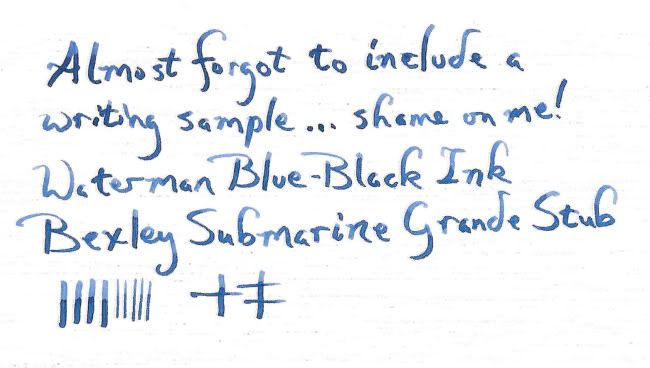 Almost forgot to include a
writing sample... shame on me!
Waterman Blue-Black Ink
Bexley Submarine Grande Stub